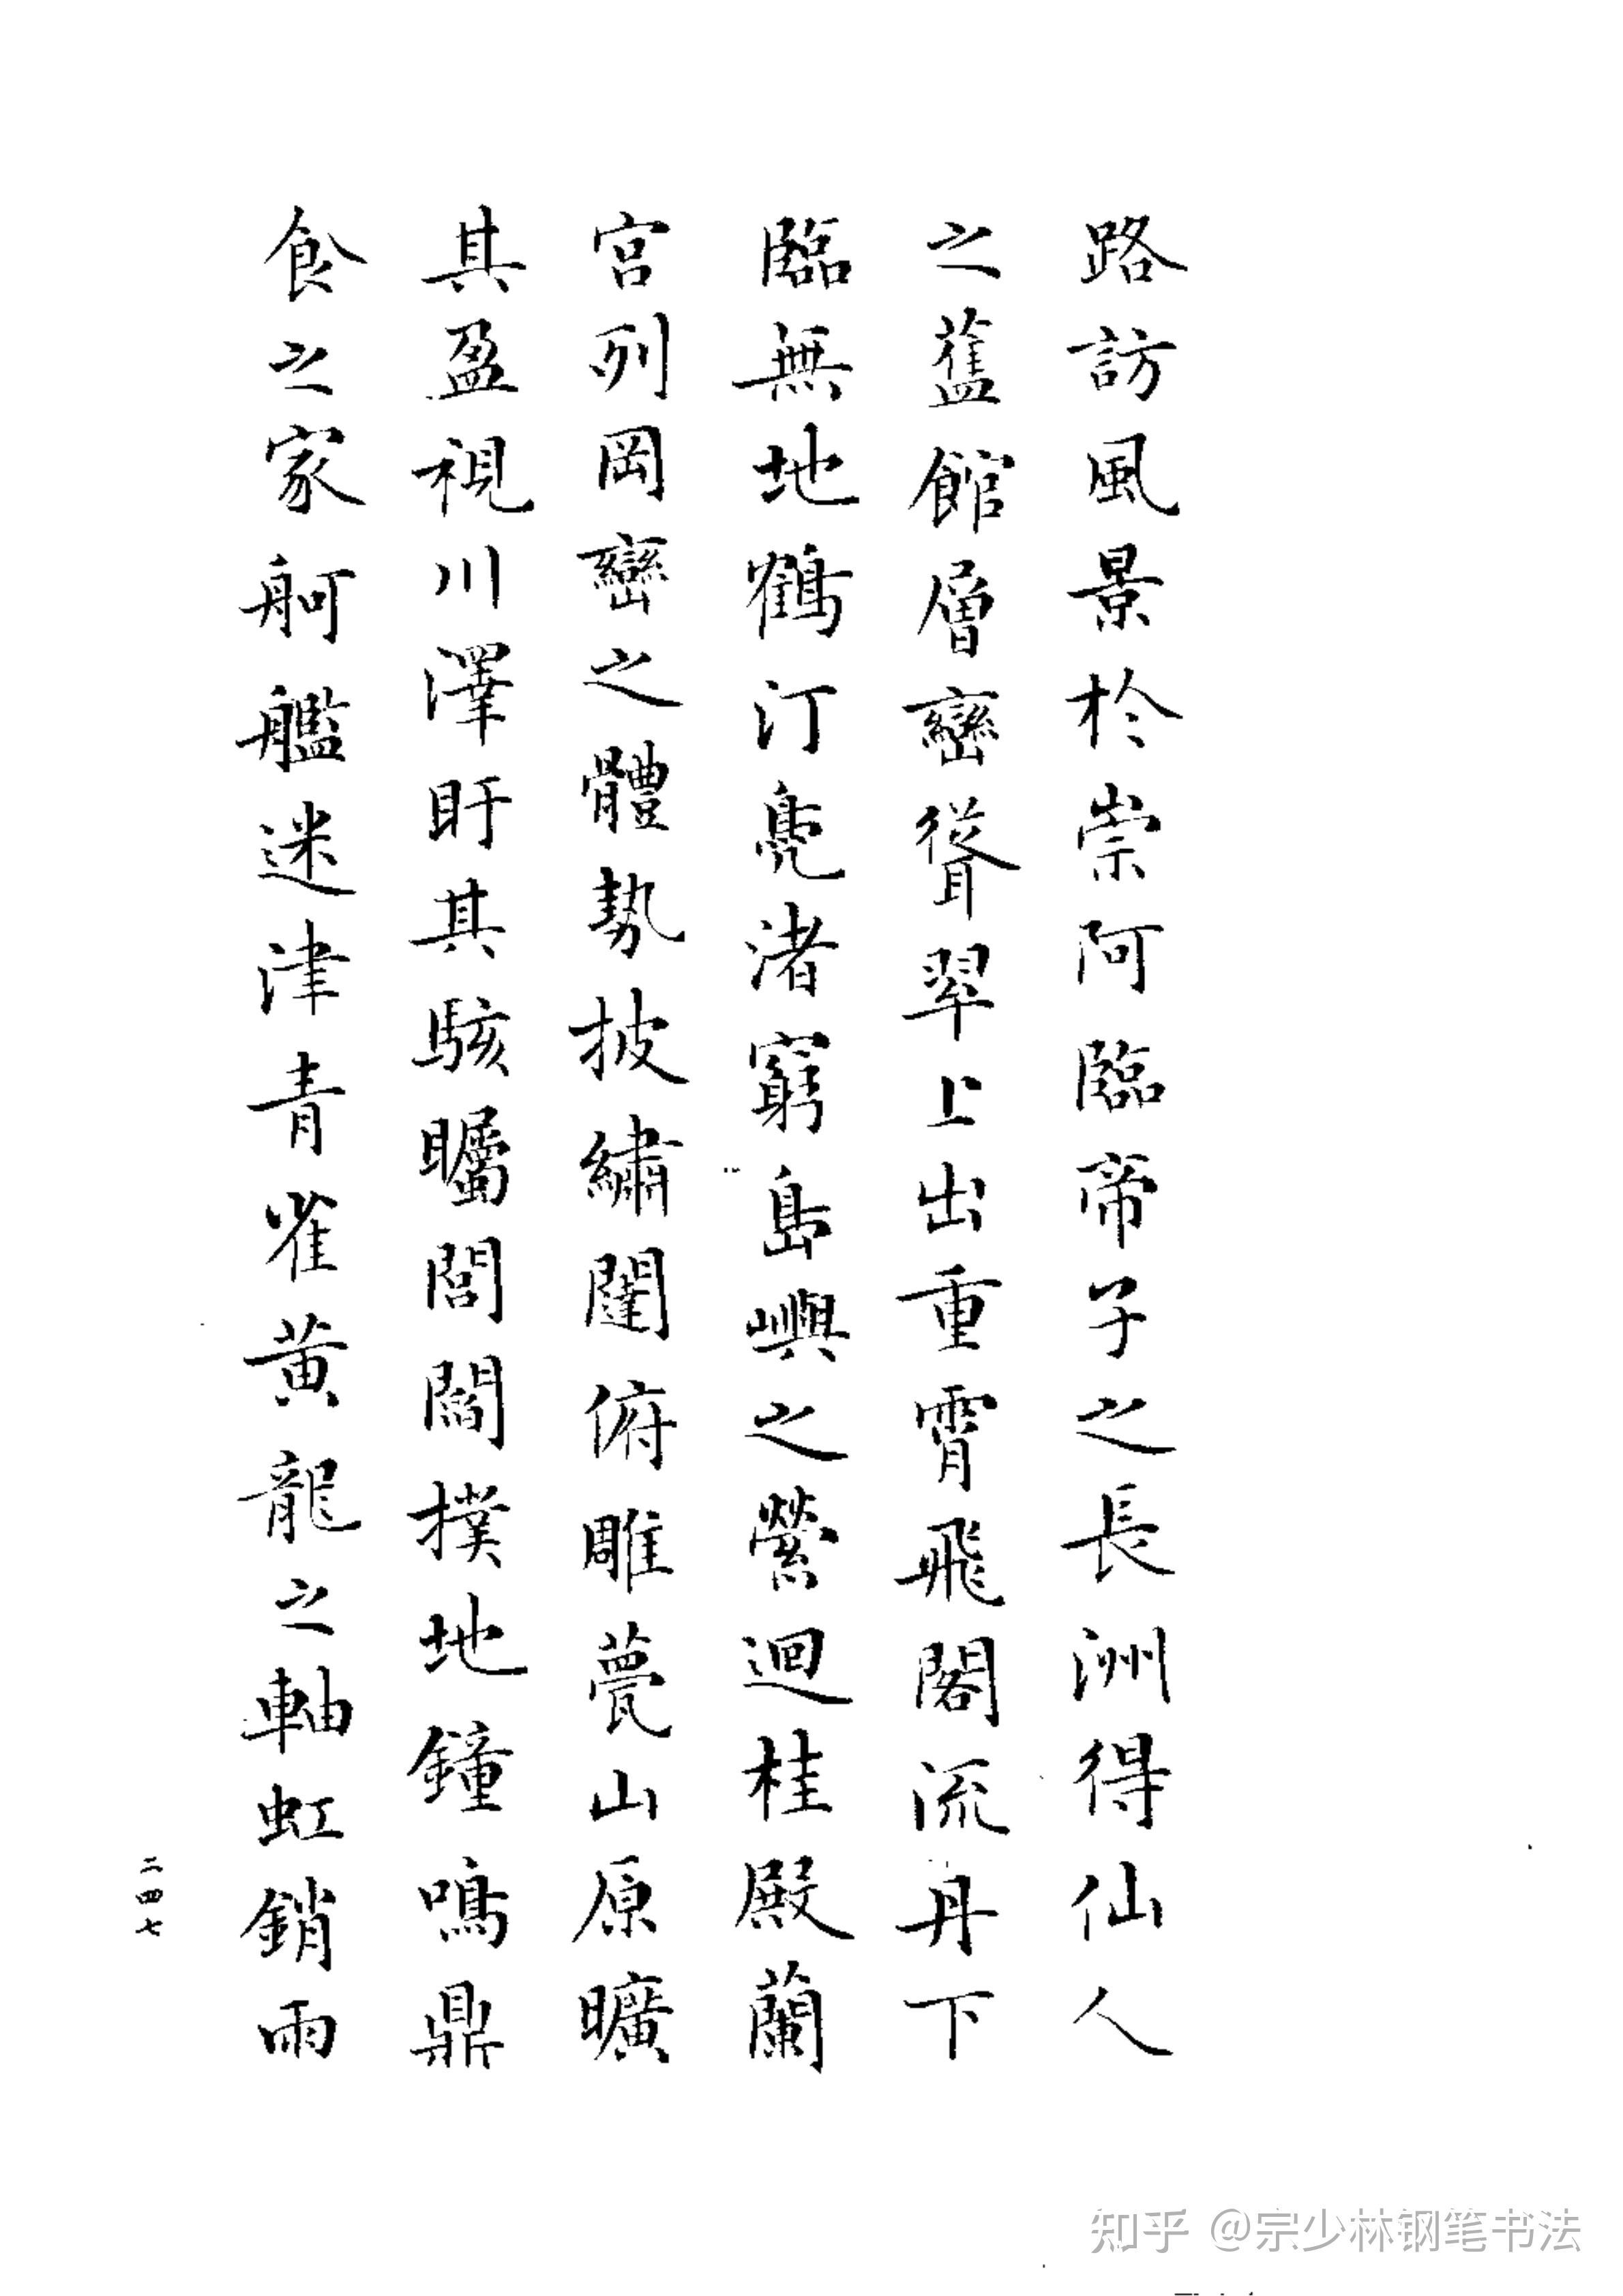 路訪風景於崇阿臨帝子之長洲得仙人
之舊館層巒聳翠上出重霄飛閣流丹下
臨無地鶴汀鳧渚窮島嶼之縈迴桂殿蘭
宮列岡巒之體勢披繡闥俯雕甍山原曠
其盈視川澤盱其駭矚閭閻撲地鐘鳴鼎
食之家舸艦迷津青雀黃龍之軸虹銷雨
二四七
知乎 @宗少林钢笔书法